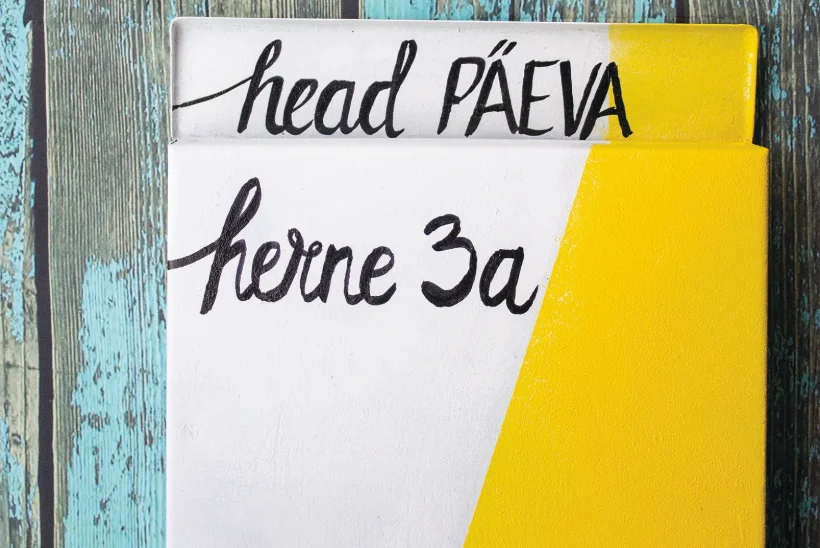 head PÄEVA
herne 3a